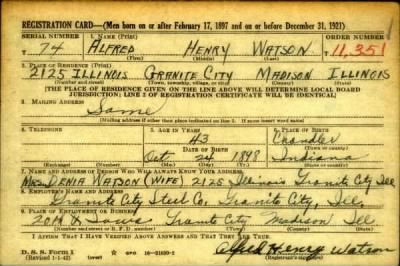 REGISTRATION CARD—(Men born on or after February 17, 1897 and on or before December 31, 1921)
SERIAL NUMBER 1. NAME (Print) ORDER NUMBER
T 74 ALFRED HENRY WATSON T 11,351
(First) (Middle) (Last)
2. PLACE OF RESIDENCE (Print)
2125 ILLINOIS GRANITE CITY MADISON ILLINOIS
(Number and street) (Town, township, village, or city) (County) (State)
[THE PLACE OF RESIDENCE GIVEN ON THE LINE ABOVE WILL DETERMINE LOCAL BOARD
JURISDICTION; LINE 2 OF REGISTRATION CERTIFICATE WILL BE IDENTICAL]
3. MAILING ADDRESS
Same
[Mailing address if other than place indicated on line 2. If same insert word same]
4. TELEPHONE 5. AGE IN YEARS 6. PLACE OF BIRTH
43 Chandler
DATE OF BIRTH (Town or county)
Oct 24 1898 Indiana
(Mo.) (Day) (Yr.) (State or country)
7. NAME AND ADDRESS OF PERSON WHO WILL ALWAYS KNOW YOUR ADDRESS
Mrs. DENIA WATSON (WIFE) 2125 Illinois Granite City Ill
8. EMPLOYER'S NAME AND ADDRESS
Granite City Steel Co. Granite City, Ill,
9. PLACE OF EMPLOYMENT OR BUSINESS
20th & Granite City Madison Ill
(Number and street or R. F. D. number) (Town) (County) (State)
I AFFIRM THAT I HAVE VERIFIED ABOVE ANSWERS AND THAT THEY ARE TRUE.
D. S. S. Form 1
(Revised 1-1-42) (over) Alfred Henry Watson
(Registrant's signature)